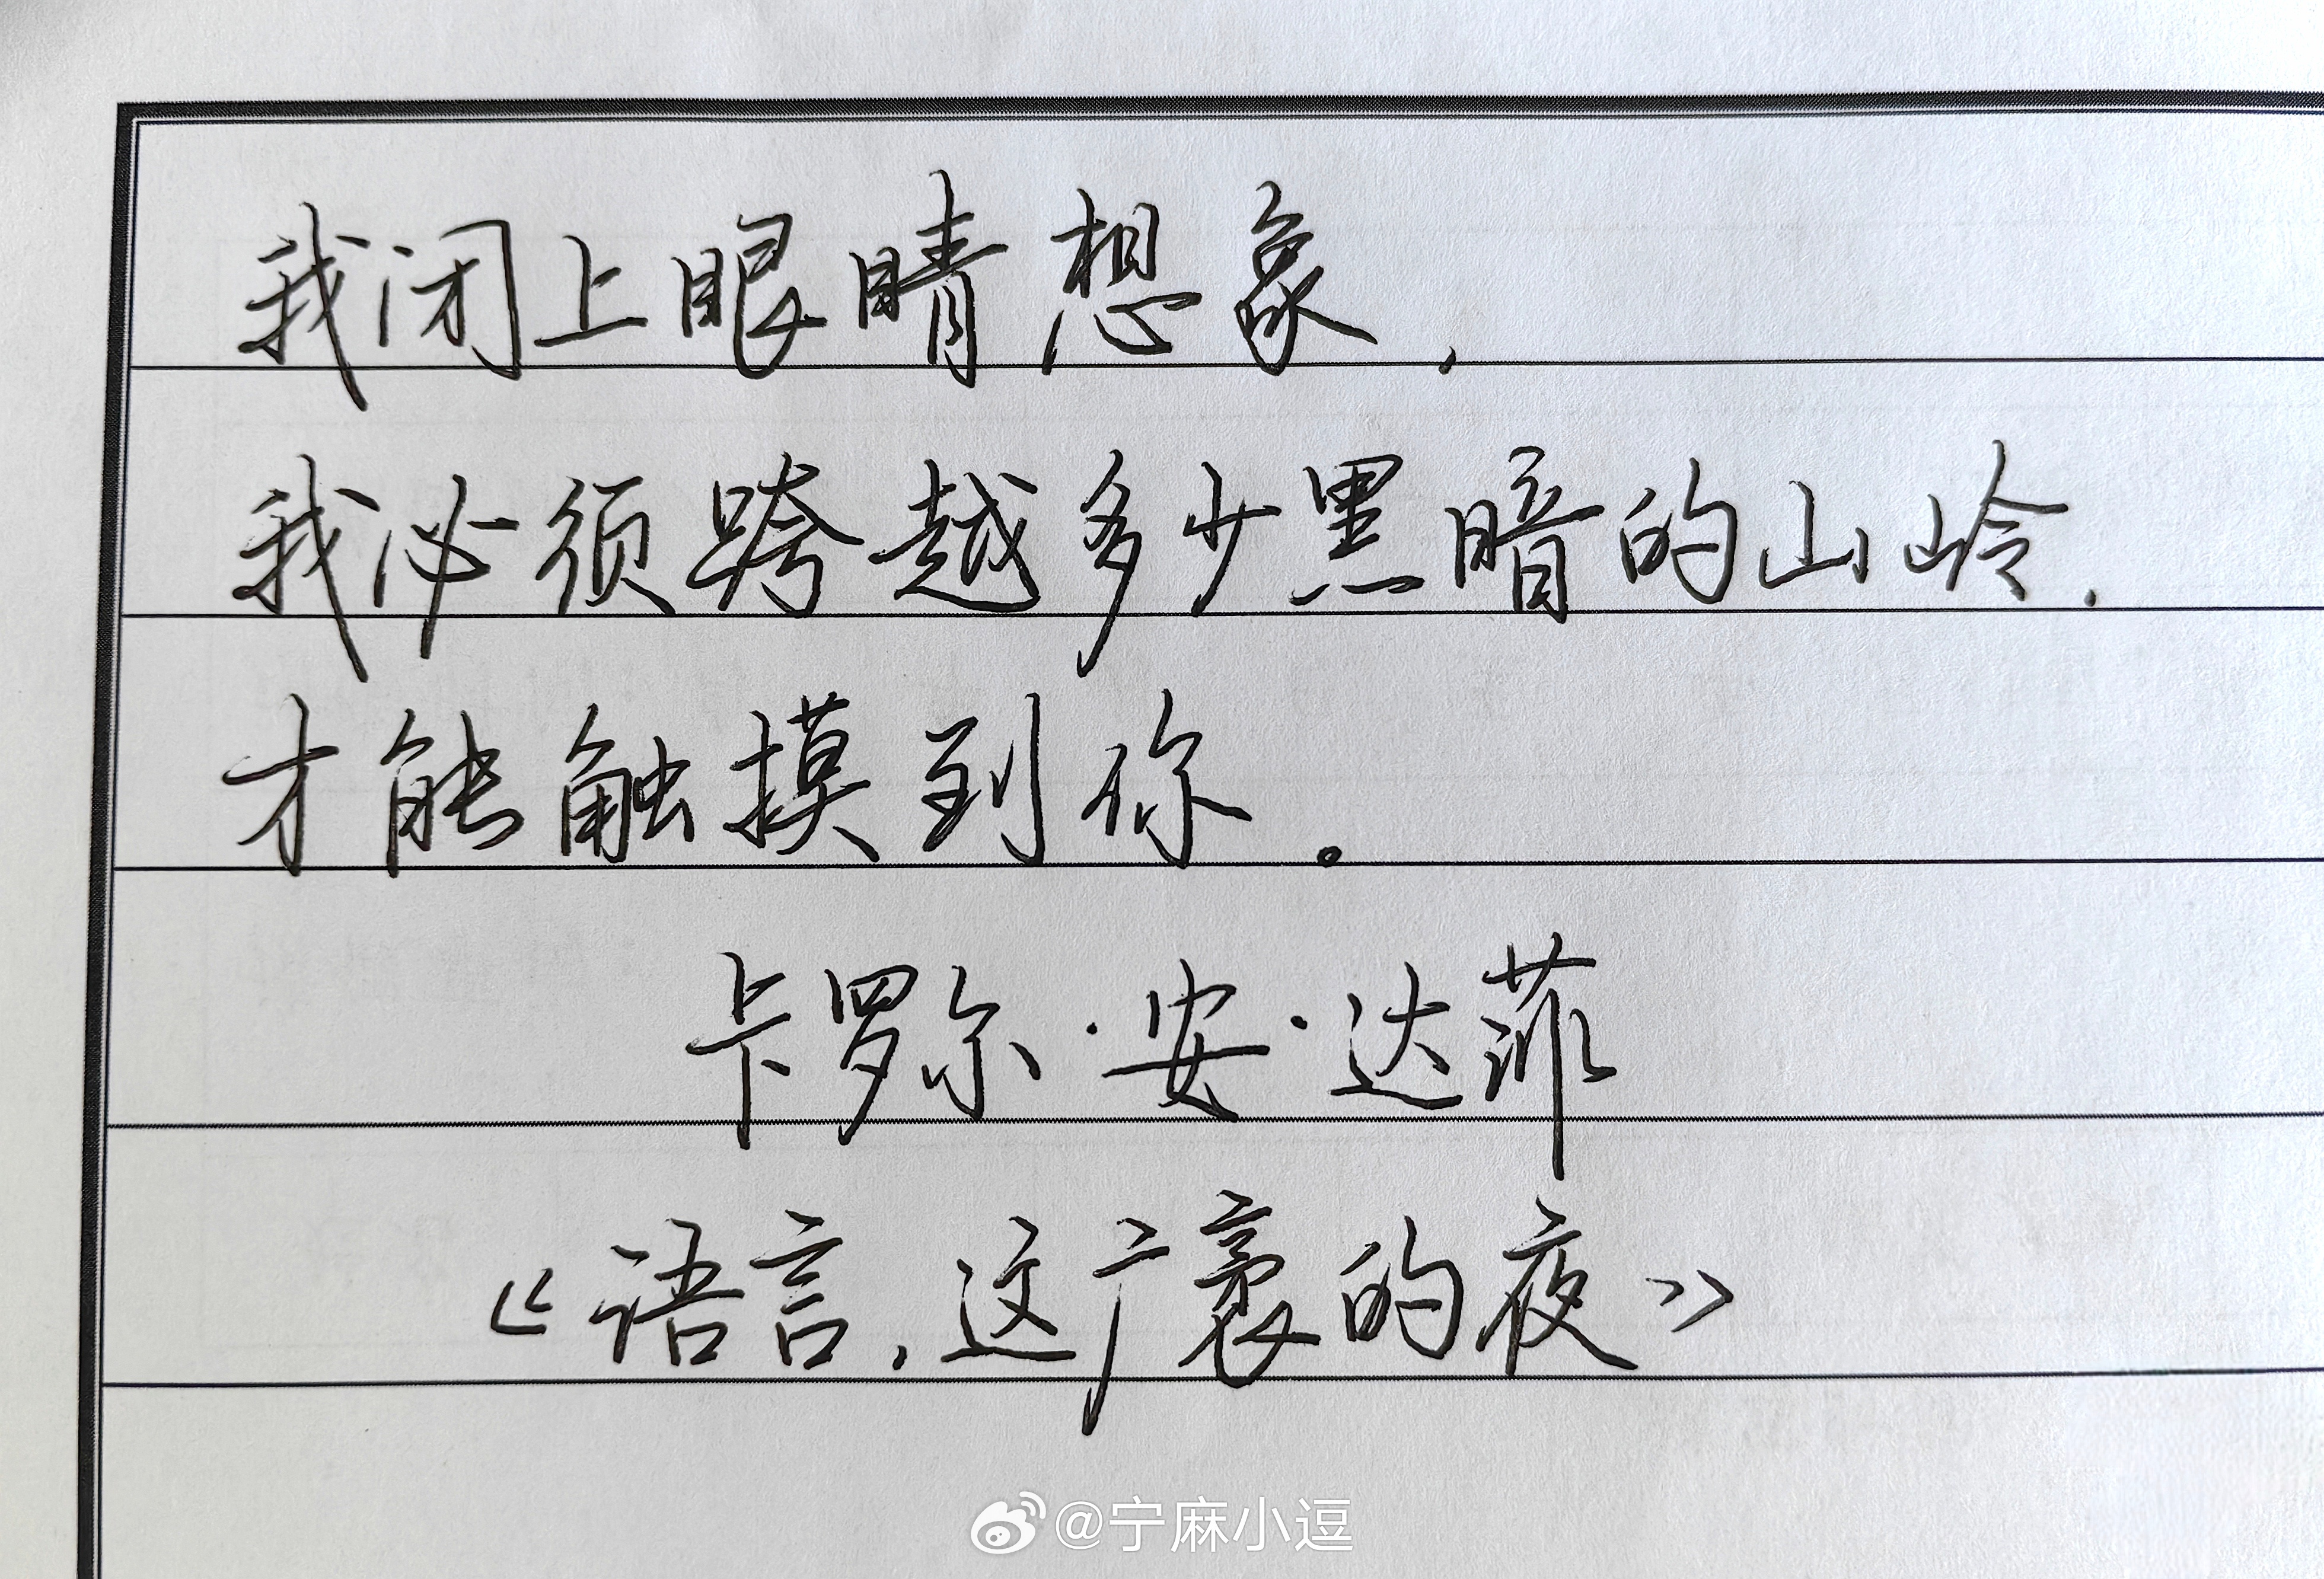 我闭上眼睛想象，
我必须跨越多少黑暗的山岭，
才能触摸到你。
卡罗尔·安·达菲
《语言，这广袤的夜》
@宁麻小逗